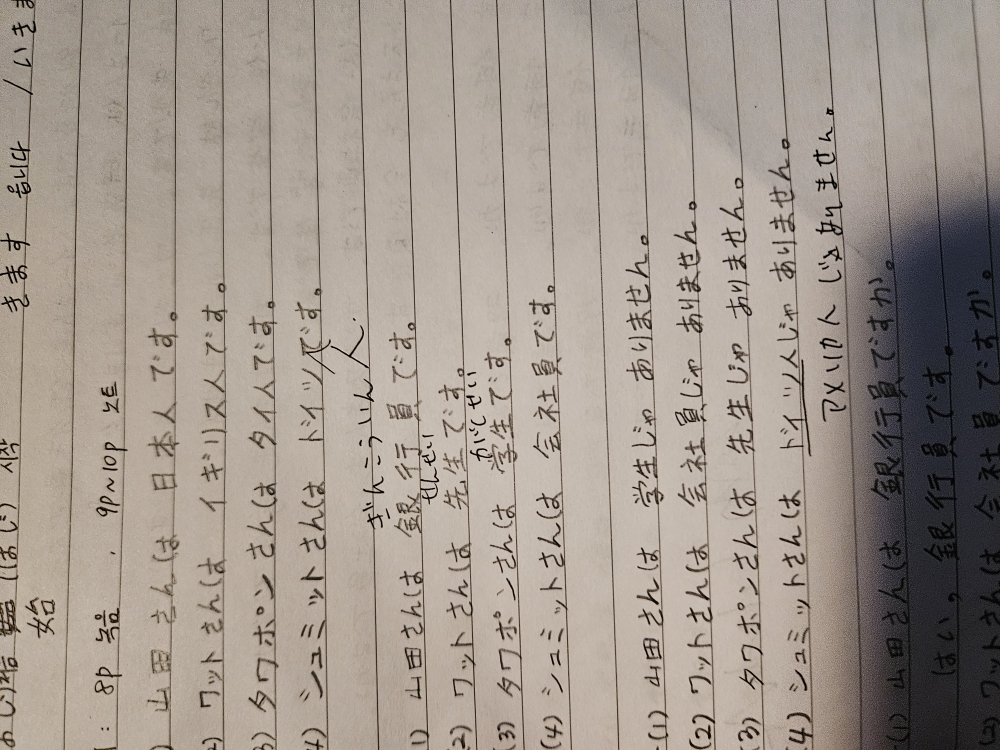 (はじ) 시작
始
きます 읍니다 / いきま
: 8p 녹음 . 9p~10p : 노트
) 山田さんは 日本人です。
2) ワットさんは イギリス人です。
3) タワポンさんは タイ人です。
4) シュミットさんは ドイツです。
人
ぎんこういん
1) 山田さんは 銀行員 です。
せんせい
(2) ワットさんは 先生です。
がくせい
(3) タワポンさんは 学生です。
(4) シュミットさんは 会社員です。
(1) 山田さんは 学生じゃ ありません。
(2) ワットさんは 会社員じゃ ありません。
(3) タワポンさんは 先生じゃ ありません。
(4) シュミットさんは ドイツ人じゃ ありません。
アメリカ人 じゃありません。
(1) 山田さんは 銀行員ですか。
はい, 銀行員です。
(2) ワットさんは 会社員ですか。